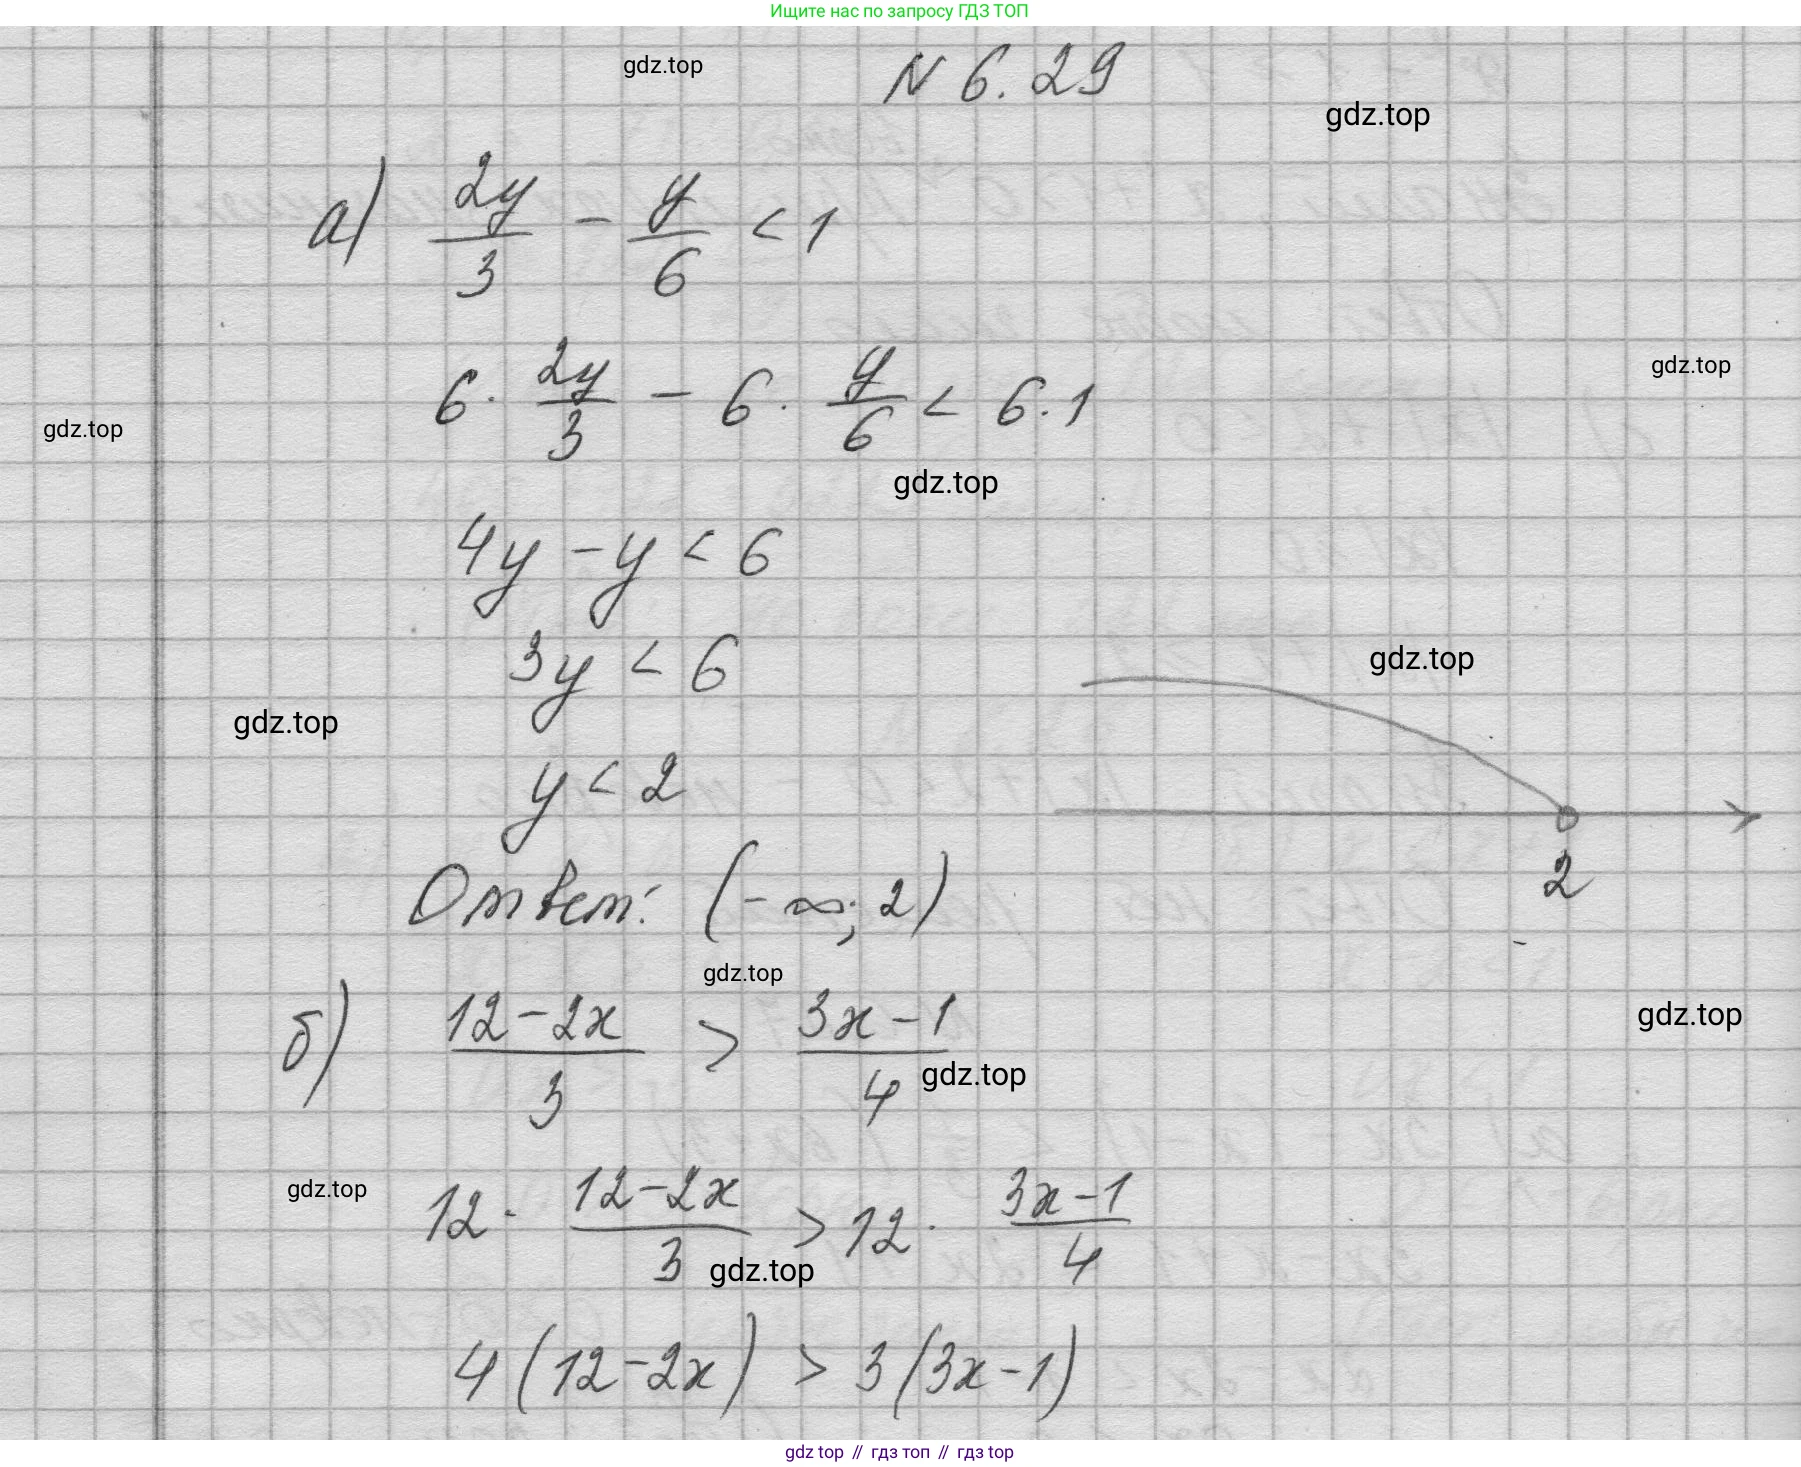 Ищите нас по запросу ГДЗ ТОП
N 6.29
gdz.top
gdz.top
а) 2y/3 - y/6 < 1
6 · 2y/3 - 6 · y/6 < 6 · 1
gdz.top
gdz.top
gdz.top
4y - y < 6
3y < 6
gdz.top
gdz.top
y < 2
2
Ответ: (-∞; 2)
gdz.top
б) 12-2x/3 > 3x-1/4
gdz.top
gdz.top
12 · 12-2x/3 > 12 · 3x-1/4
gdz.top
gdz.top
4(12-2x) > 3(3x-1)
gdz top // гдз топ // гдз top